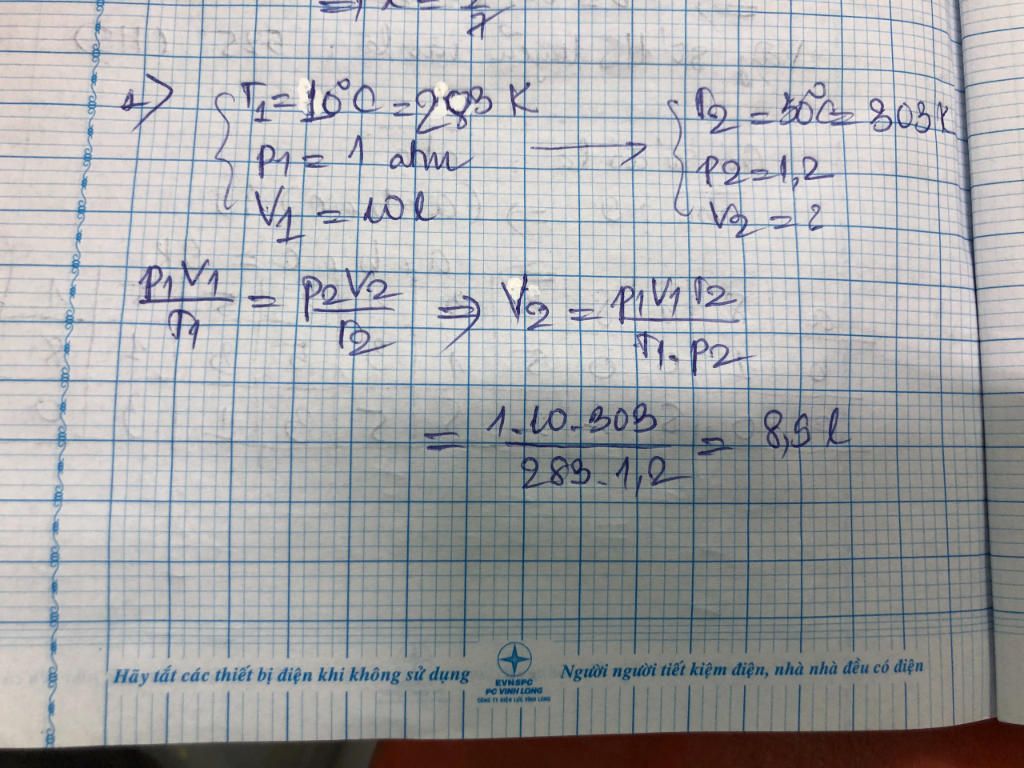 => x = 2/7
a) T1 = 10°C = 283 K → T2 = 30°C = 303K
P1 = 1 atm P2 = 1,2
V1 = 10l V2 = ?
P1V1/T1 = P2V2/T2 => V2 = P1V1T2/T1.P2
= 1.10.303/283.1,2 = 8,9 l
Hãy tắt các thiết bị điện khi không sử dụng
EVNSPC
PC VINH LONG
CÔNG TY ĐIỆN LỰC VĨNH LONG
Người người tiết kiệm điện, nhà nhà đều có điện